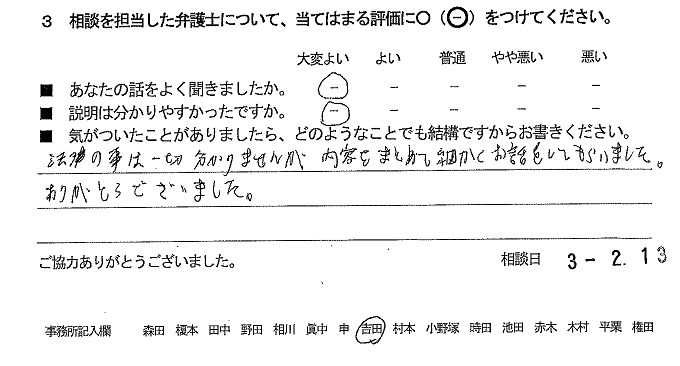 3 相談を担当した弁護士について、当てはまる評価に○（㊀）をつけてください。
大変よい よい 普通 やや悪い 悪い
■ あなたの話をよく聞きましたか。 － － － － －
■ 説明は分かりやすかったですか。 － － － － －
■ 気がついたことがありましたら、どのようなことでも結構ですからお書きください。
法律の事は一切分かりませんが 内容をまとめて細かくお話をしてもらいました。
ありがとうございました。
ご協力ありがとうございました。 相談日 3-2.13
事務所記入欄 森田 榎本 田中 野田 相川 眞中 申 吉田 村本 小野塚 時田 池田 赤木 木村 平栗 権田